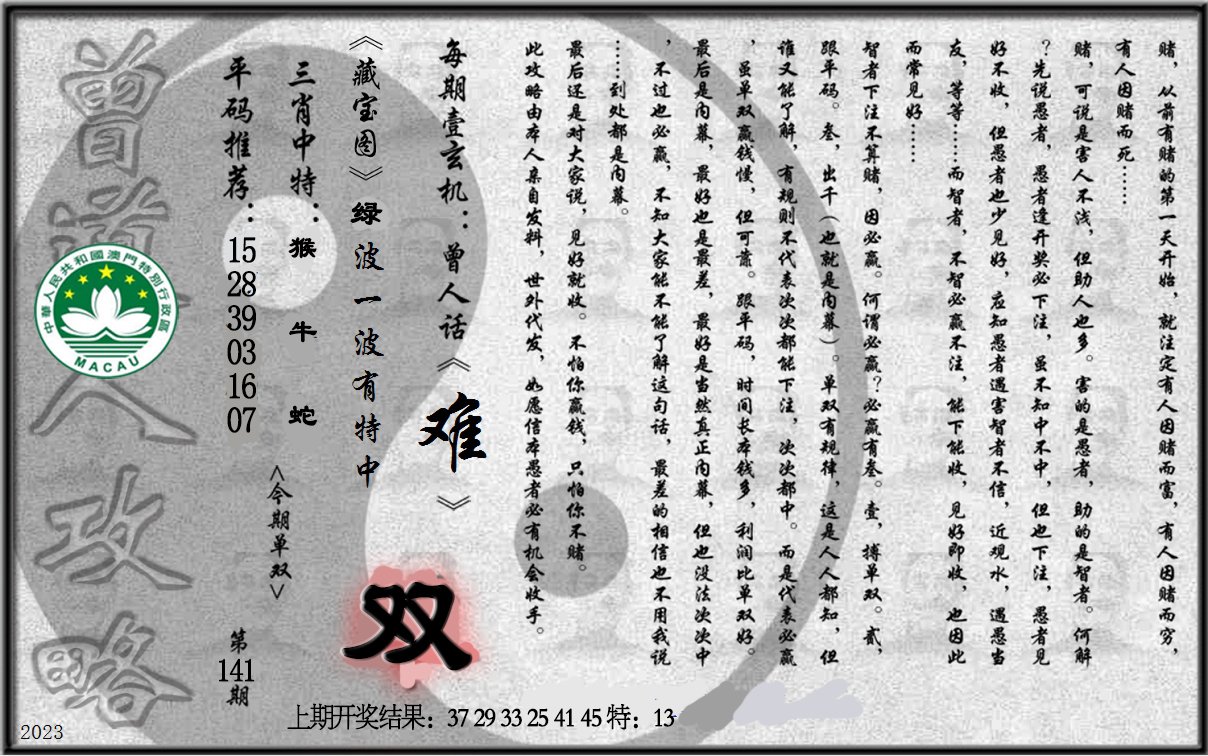 赌，从前有赌的第一天开始，就注定有人因赌而富，有人因赌而穷，
有人因赌而死……
赌，可说是害人不浅，但助人也多。害的是愚者，助的是智者。何解
？先说愚者，愚者逢开奖必下注，虽不知中不中，但也下注，愚者见
好不收，但愚者也少见好，应知愚者遇害智者不信，近观水，遇愚当
友，等等……而智者，不智必赢不注，能下能收，见好即收，也因此
而常见好……
智者下注不算赌，因必赢。何谓必赢？必赢有叁。壹，搏单双。贰，
跟平码。叁，出千（也就是内幕）。单双有规律，这是人人都知，但
谁又能了解，有规则不代表次次都能下注，次次都中。而是代表必赢
，虽单双赢钱慢，但可靠。跟平码，时间长本钱多，利润比单双好。
最后是内幕，最好也是最差，最好是当然真正内幕，但也没法次次中
，不过也必赢，不知大家能不能了解这句话，最差的相信也不用我说
……到处都是内幕。
最后还是对大家说，见好就收。不怕你赢钱，只怕你不赌。
此攻略由本人亲自发料，世外代发，如愿信本愚者必有机会收手。
每期壹玄机：曾人话《难》
《藏宝图》绿波一波有特中
双
三肖中特：猴 牛 蛇
<今期单双>
平码推荐：15 28 39 03 16 07
第141期
曾道人攻略
中華人民共和國澳門特別行政區
MACAU
上期开奖结果：37 29 33 25 41 45 特：13
2023